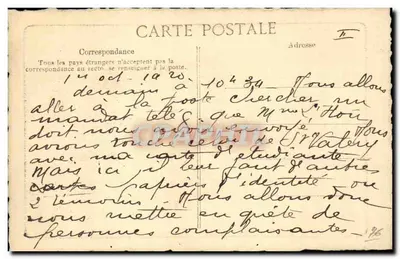 CARTE POSTALE
Correspondance
Adresse
Tous les pays étrangers n'acceptent pas la
correspondance au recto, se renseigner à la poste.
1er oct. 1920.
demain à 10h30 - Nous allons
aller à la poste chercher un
mandat télég que Mme
doit nous avoir envoyé. Nous
avons touché celui de St Valery
avec ma carte d'étudiante
Mais ici il leur faut d'autres
papiers d'identité ou
2 témoins. Nous allons donc
nous mettre en quête de
personnes complaisantes.